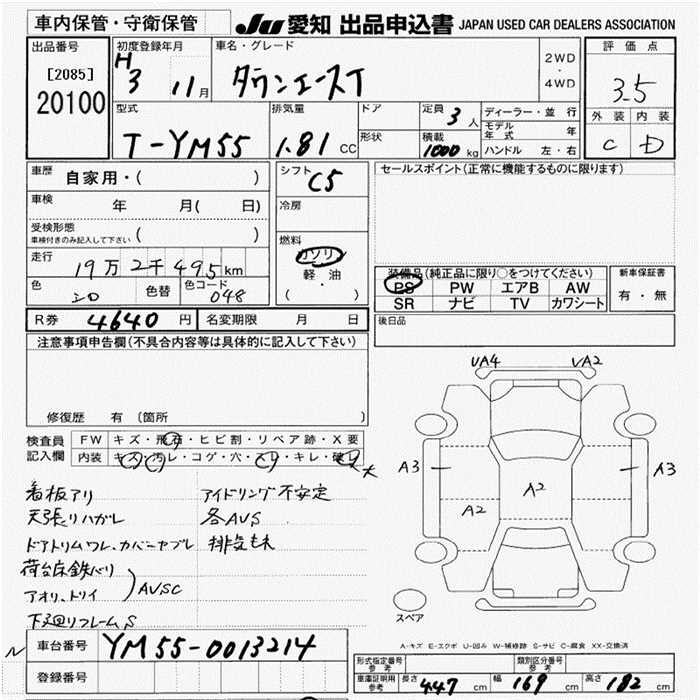 車内保管・守衛保管 JU 愛知 出品申込書 JAPAN USED CAR DEALERS ASSOCIATION
出品番号
[2085]
20100
初度登録年月
H3 11月
車名・グレード
タウンエースT
2WD
・
4WD
評価点
3.5
外装 内装
C D
型式
T-YM55
排気量
1.81 CC
ドア
形状
定員 3人
積載 1000 kg
ディーラー・並行
モデル年式 年
ハンドル 左・右
車歴 自家用・( )
車検 年 月( 日)
受検形態
車検付きのみ記入して下さい ( )
走行 19万2千495km
色 シロ 色替 色コード 048
シフト C5
冷房
燃料
ガソリン
軽・油
( )
セールスポイント(正常に機能するものに限ります)
装備品(純正品に限り○をつけてください)
PS PW エアB AW
SR ナビ TV カワシート
新車保証書
有・無
R券 4640 円 名変期限 月 日
後日品
注意事項申告欄(不具合内容等は具体的に記入して下さい)
修復歴 有 〔箇所 〕
検査員記入欄
FW キズ・飛石・ヒビ割・リペア跡・X要
内装 キズ・汚レ・コゲ・穴・スレ・キレ・破レ 大
看板アリ アイドリング不安定
天張リハガレ 各AVS
ドアトリムワレ、カバーヤブレ 排気もれ
荷台床鉄バリ
アオリ、トリイ AVSC
下廻リフレームS
UA4 VA2
A3 A3
A2
A2
スペア
A-キズ E-エクボ U-凹み W-補修跡 S-サビ C-腐食 XX-交換済
N 車台番号 YM55-0013214
登録番号
形式指定番号 参考 類別区分番号 参考
車庫証明用 参考 長さ 447 cm 幅 169 cm 高さ 182 cm